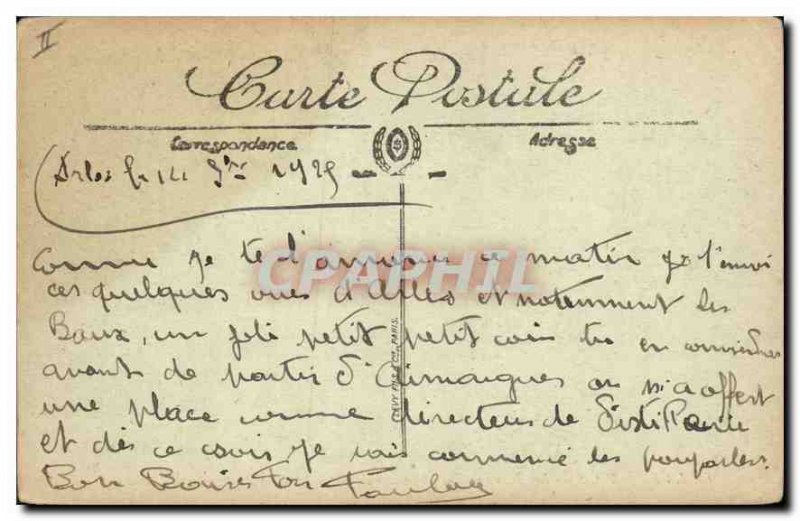 II
Carte Postale
Correspondance
Adresse
Arles le 14 9bre 1925
CPARAMA
comme je te l'annonce ce matin je t'envoi
ces quelques vues d'Arles et notamment les
Baux, un joli petit petit coin tu en conviendras
avant de partir d'Aimargues on m'a offert
une place comme directeur de
et dès ce soir je vais commencé les pourparlers.
Bon Baiser ton
LEVY FILS & Cie, PARIS.